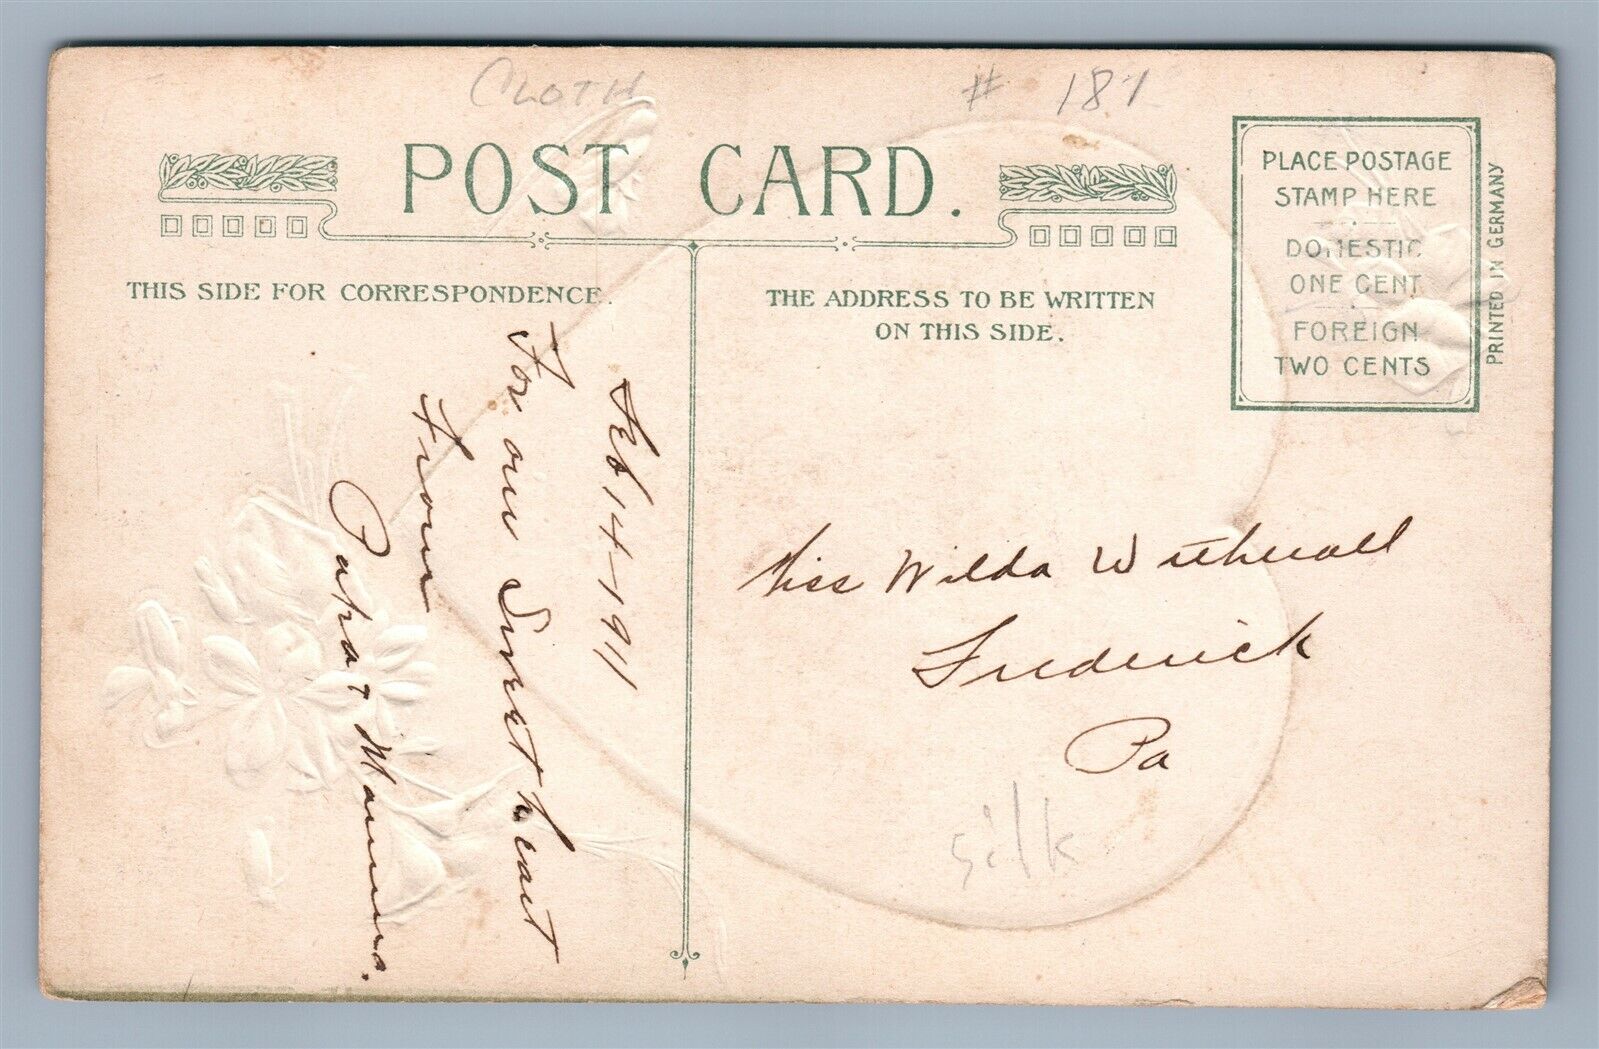 CLOTH
# 187
POST CARD.
THIS SIDE FOR CORRESPONDENCE.
THE ADDRESS TO BE WRITTEN
ON THIS SIDE.
PLACE POSTAGE
STAMP HERE
DOMESTIC
ONE CENT
FOREIGN
TWO CENTS
PRINTED IN GERMANY
Feb 14-1911
For our Sweetheart
From
Papa & Mamma.
Miss Wilda Witherall
Frederick
Pa
silk